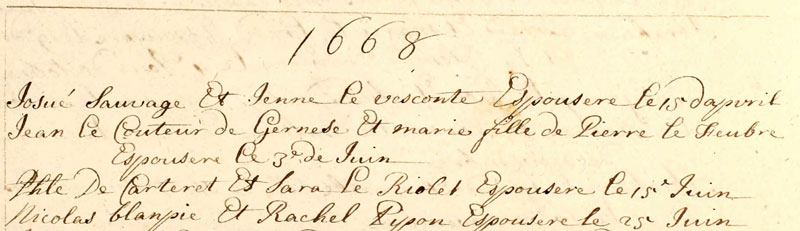 1668
Josué Sauvage Et Jenne Le vesconte Espousere le 15 dapvril
Jean Le Couteur de Gernese Et marie fille de Pierre le Feubre
Espousere Le 3e de Juin
Phle De Carteret Et Sara Le Riolet Espousere le 15e Juin
Nicolas blanpie Et Rachel Pypon Espousere le 25 Juin